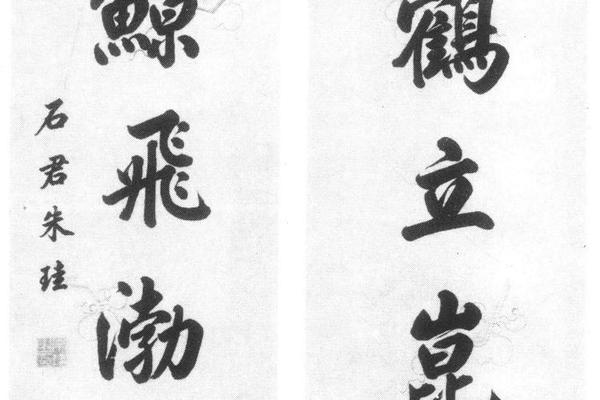 鶴立崑
鯨飛渤
石君朱珪